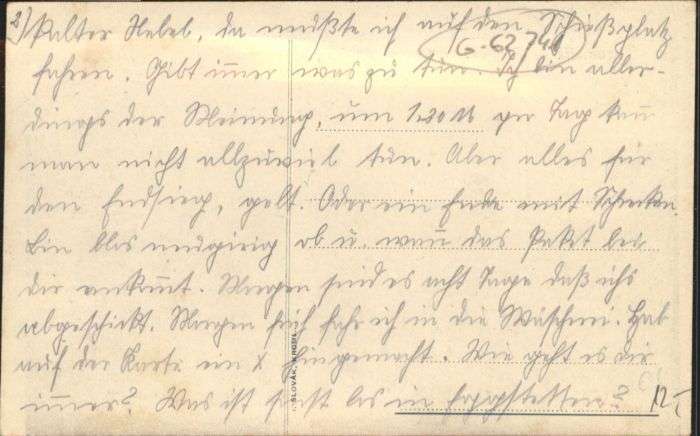 2) kalter Nebel, da mußte ich auf den Schießplatz
G-62 740
fahren. Gibt immer was zu tun. Ich bin aller-
dings der Meinung, um 1.20 M per Tag kann
man nicht allzuviel tun. Aber alles für
den Endsieg, gelt. Oder ein Ende mit Schrecken.
Bin blos neugierig ob u. wann das Paket bei
dir ankommt. Morgen sind es acht Tage daß ichs
abgeschickt. Morgen früh fahr ich in die Wäscherei. Hab
auf der Karte ein X hingemacht. Wie geht es dir
immer? Was ist sonst los in Hoppstetten?
12.-
SLOVÁK, KROM